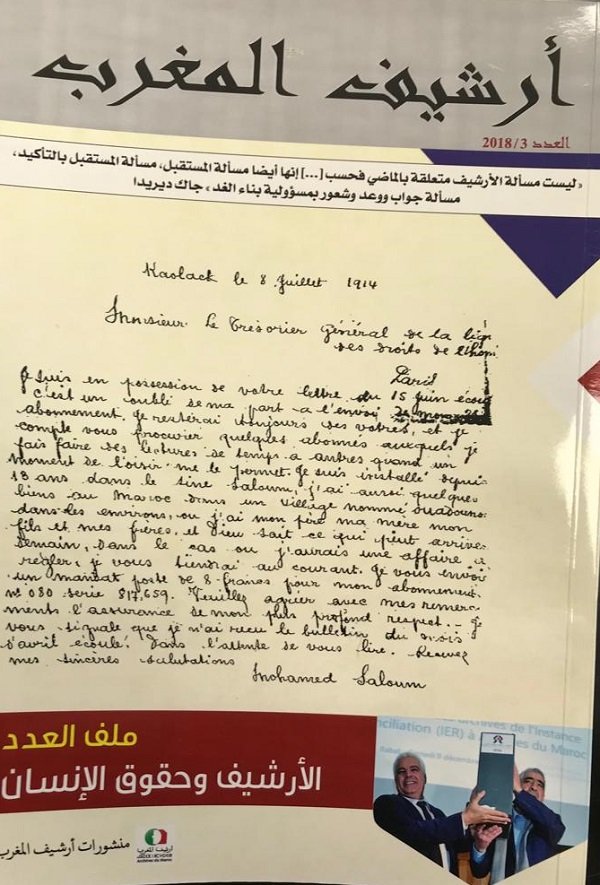 أرشيف المغرب
العدد 2018/3
« ليست مسألة الأرشيف متعلقة بالماضي فحسب [...] إنها أيضا مسألة المستقبل، مسألة المستقبل بالتأكيد،
مسألة جواب ووعد وشعور بمسؤولية بناء الغد » جاك ديريدا
Kaolack le 8 Juillet 1914
Monsieur Le Trésorier Général de la lig
des droits de l'hom
Paris
Je suis en possession de votre lettre du 15 juin écou
c'est un oublé de ma part a l'envoi de mon
abonnement, je resterai toujours des votres, et je
compte vous procurier quelques abonnés auxquels je
fais faire des lectures de temps a autres quand un
moment de l'oisir me le permet. Je suis installé depuis
18 ans dans le sine Saloum, j'ai aussi quelque
biens au Maroc dans un village nommé
dans les environs, ou j'ai mon père ma mère mon
fils et mes frères, et Dieu sait ce qui peut arriver
demain, Dans le cas ou j'aurais une affaire a
regler, je vous tiendrai au courant. Je vous envoi
un mandat poste de 8 francs pour mon abonnement
n° 080 serie 817,659. Veuillez agrier avec mes remer
ments l'assurance de mon plus profond respect. - Je
vous signale que je n'ai recu le bulletin du mois
d'avril écoulé. Dans l'attente de vous lire. Recevez
mes sincères salutations
Mohamed Saloum
ملف العدد
الأرشيف وحقوق الإنسان
archives de l'Instance
nciliation (IER) à
es du Maroc
منشورات أرشيف المغرب
أرشيف المغرب
Archives du Maroc